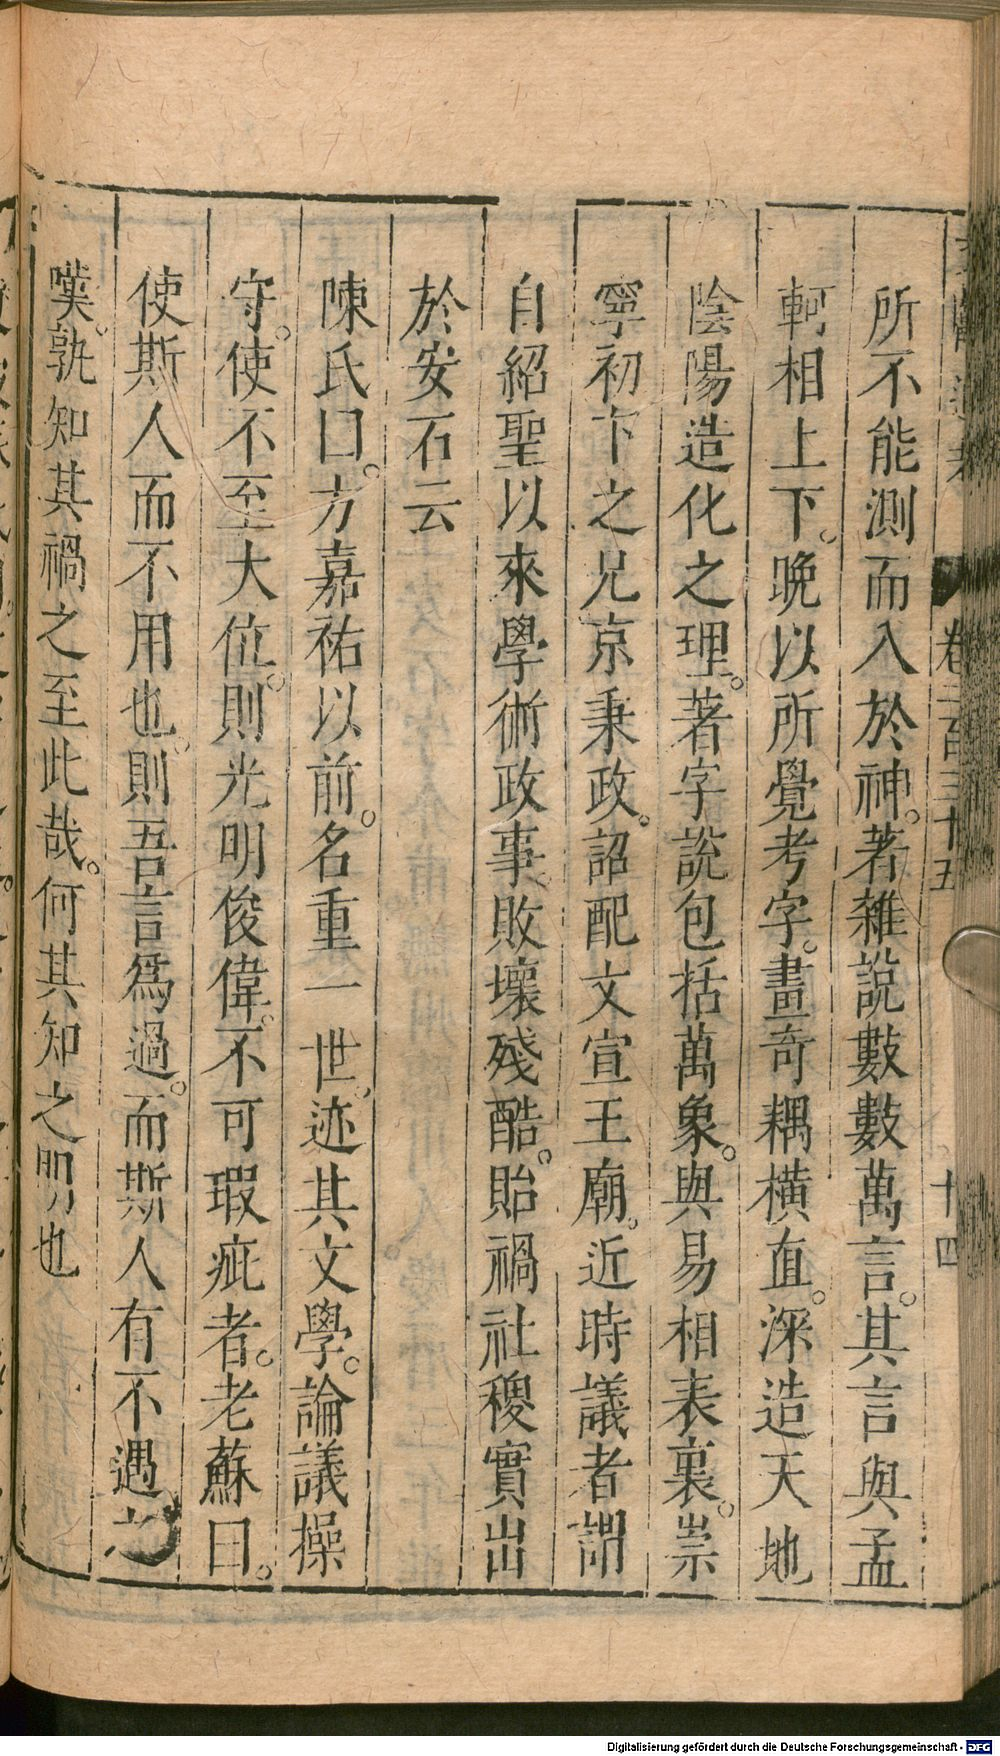 文獻通考　卷二百三十五　十四
所不能測而入於神。著雜說數數萬言。其言與孟
軻相上下。晩以所覺考字。畫奇耦橫直。深造天地
陰陽造化之理。著字說包括萬象。與易相表裏。崇
寧初卞之兄京秉政。詔配文宣王廟。近時議者謂
自紹聖以來學術政事。敗壞殘酷。貽禍社稷實出
於安石云
陳氏曰。方嘉祐以前。名重一世。迹其文學。論議操
守。使不至大位。則光明俊偉。不可瑕疵者。老蘇曰。
使斯人而不用也。則吾言爲過。而斯人有不遇之
嘆。孰知其禍之至此哉。何其知之明也
Digitalisierung gefördert durch die Deutsche Forschungsgemeinschaft - DFG